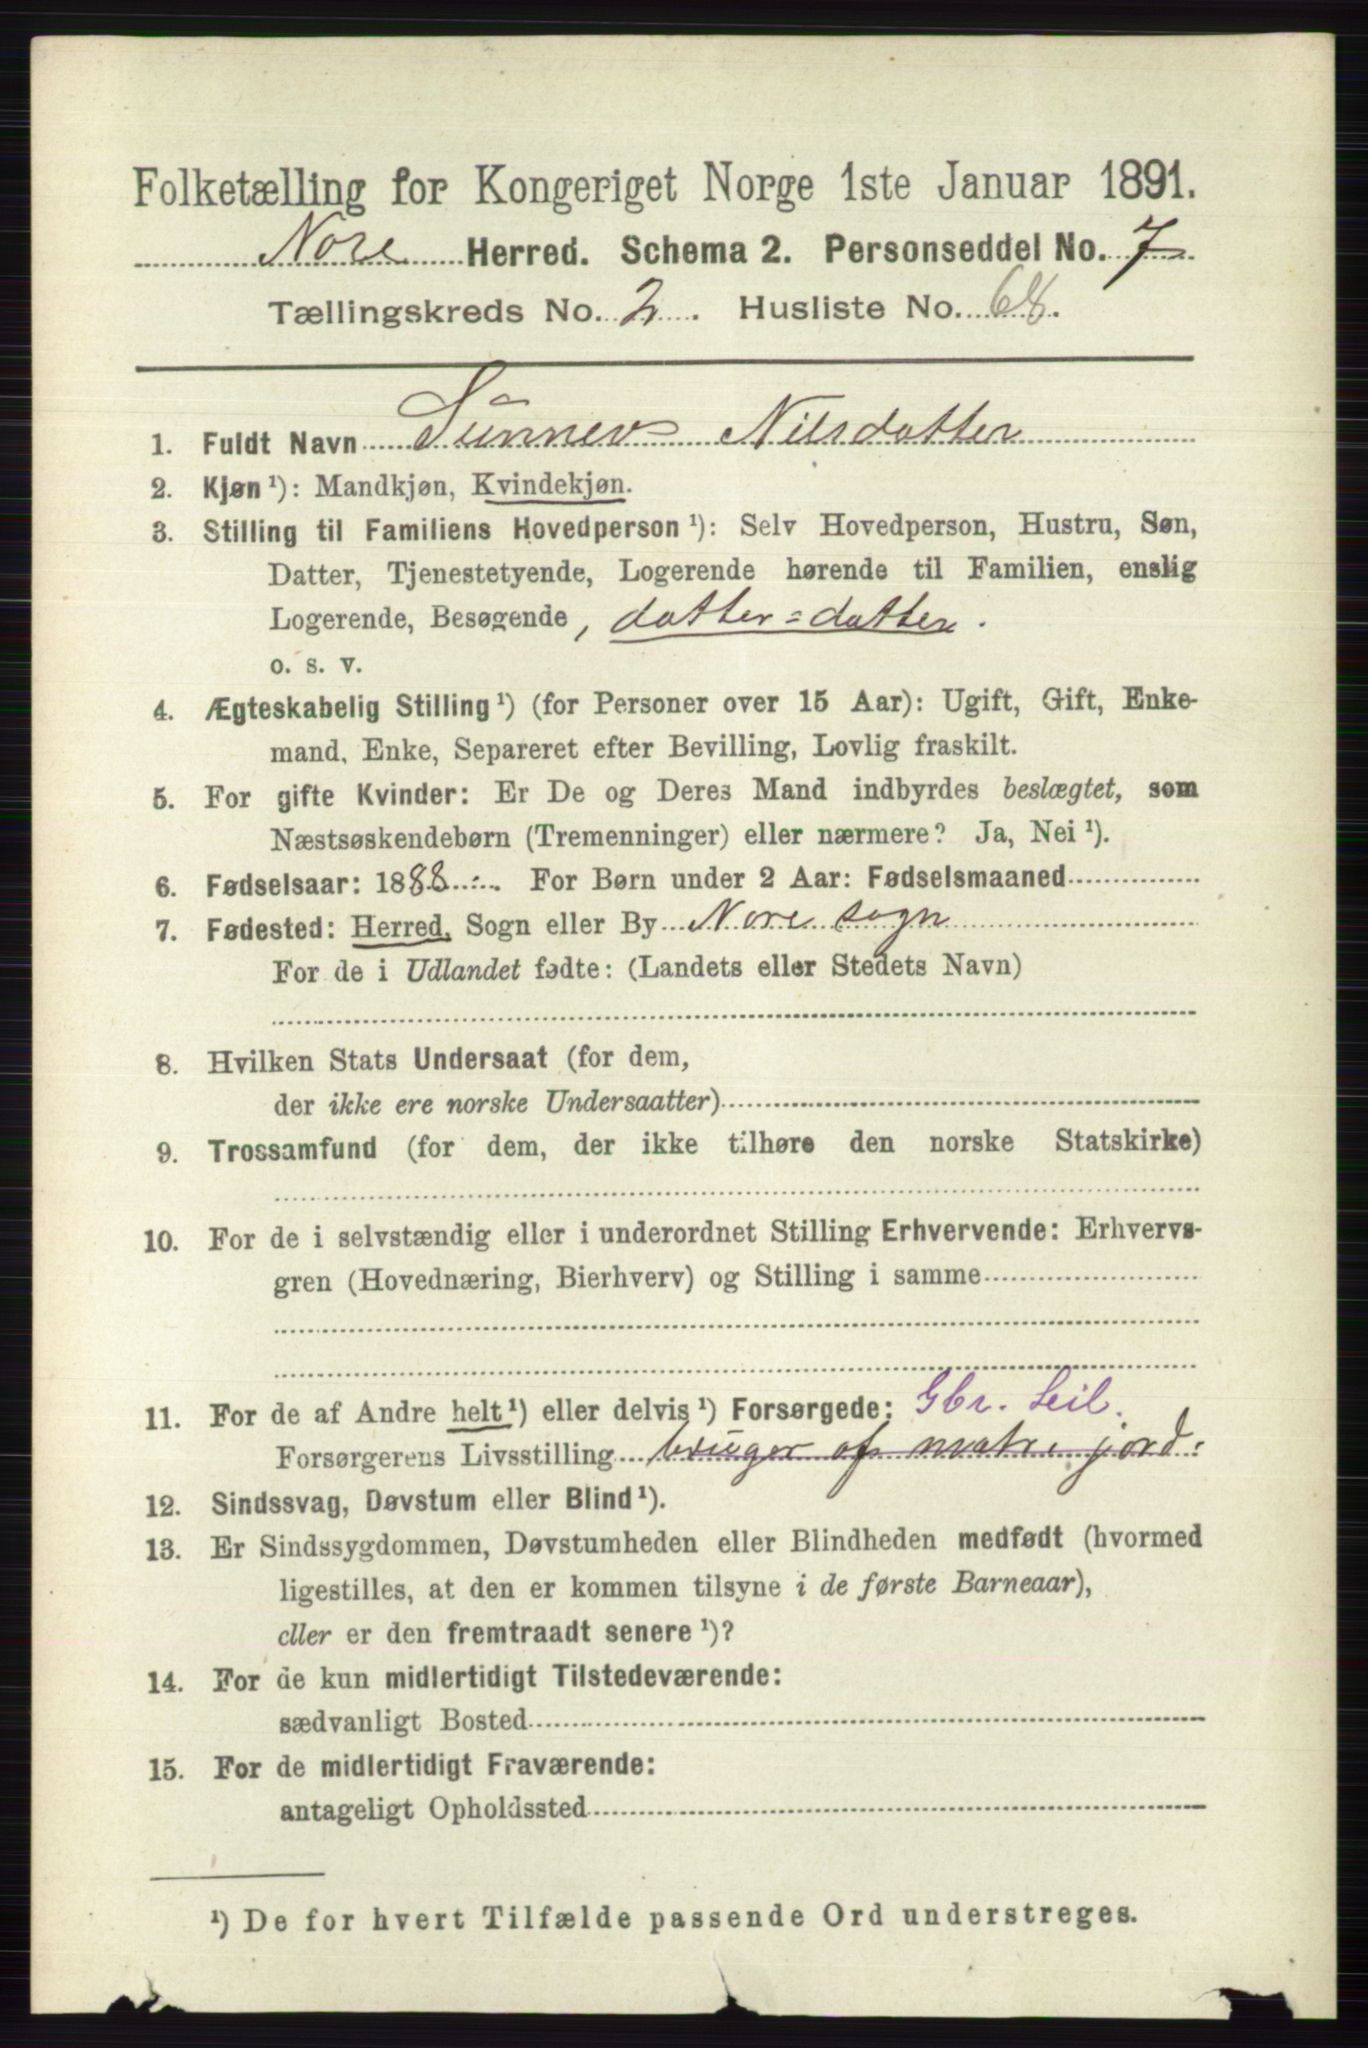 Folketælling for Kongeriget Norge 1ste Januar 1891.
Nore Herred. Schema 2. Personseddel No. 7
Tællingskreds No. 2. Husliste No. 68.
1. Fuldt Navn Sünnev Nilsdatter
2. Kjøn ¹): Mandkjøn, Kvindekjøn.
3. Stilling til Familiens Hovedperson ¹): Selv Hovedperson, Hustru, Søn,
Datter, Tjenestetyende, Logerende hørende til Familien, enslig
Logerende, Besøgende, datter=datter.
o. s. v.
4. Ægteskabelig Stilling ¹) (for Personer over 15 Aar): Ugift, Gift, Enke-
mand, Enke, Separeret efter Bevilling, Lovlig fraskilt.
5. For gifte Kvinder: Er De og Deres Mand indbyrdes beslægtet, som
Næstsøskendebørn (Tremenninger) eller nærmere? Ja, Nei ¹).
6. Fødselsaar: 1888. For Børn under 2 Aar: Fødselsmaaned
7. Fødested: Herred, Sogn eller By Nore sogn
For de i Udlandet fødte: (Landets eller Stedets Navn)
8. Hvilken Stats Undersaat (for dem,
der ikke ere norske Undersaatter)
9. Trossamfund (for dem, der ikke tilhøre den norske Statskirke)
10. For de i selvstændig eller i underordnet Stilling Erhvervende: Erhvervs-
gren (Hovednæring, Bierhverv) og Stilling i samme
11. For de af Andre helt ¹) eller delvis ¹) Forsørgede: Gbr. Leil.
Forsørgerens Livsstilling bruger af matr. jord.
12. Sindssvag, Døvstum eller Blind ¹).
13. Er Sindssygdommen, Døvstumheden eller Blindheden medfødt (hvormed
ligestilles, at den er kommen tilsyne i de første Barneaar),
eller er den fremtraadt senere ¹)?
14. For de kun midlertidigt Tilstedeværende:
sædvanligt Bosted
15. For de midlertidigt Fraværende:
antageligt Opholdssted
¹) De for hvert Tilfælde passende Ord understreges.